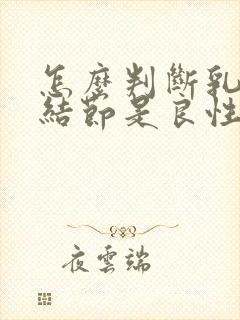 怎麼判斷乳
結節是良性
夜雲端